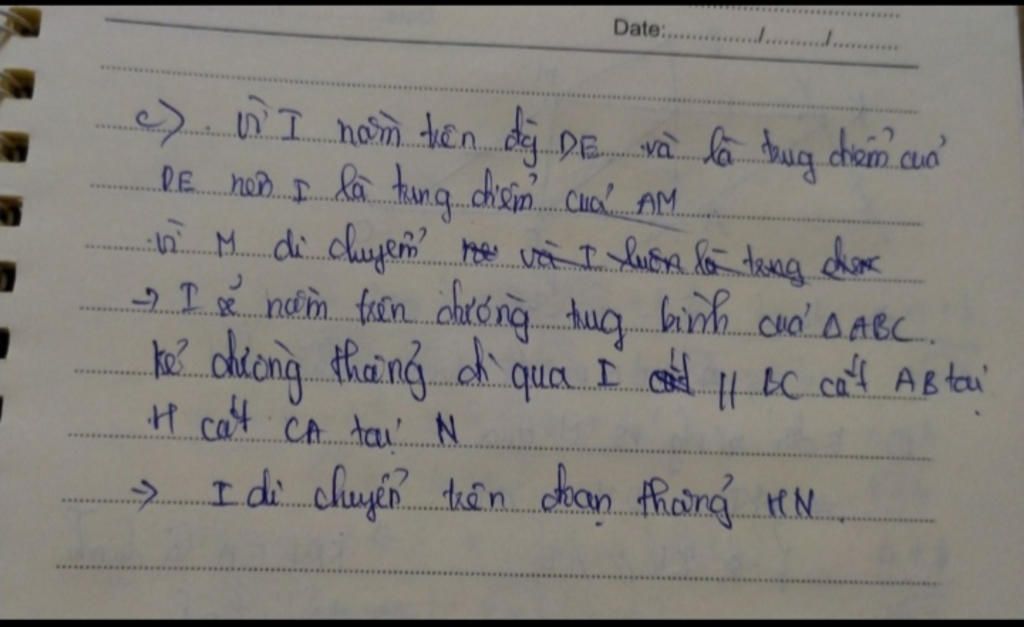 Date:............./.........../...........
c). Vì I nằm trên đg DE và là trug điểm của
DE nên I là trung điểm của AM
Vì M di chuyển và I luôn là trung
→ I sẽ nằm trên đường trug bình của △ABC.
Kẻ đường thẳng đi qua I // BC cắt AB tại
H cắt CA tại N
→ I di chuyển trên đoạn thẳng HN.